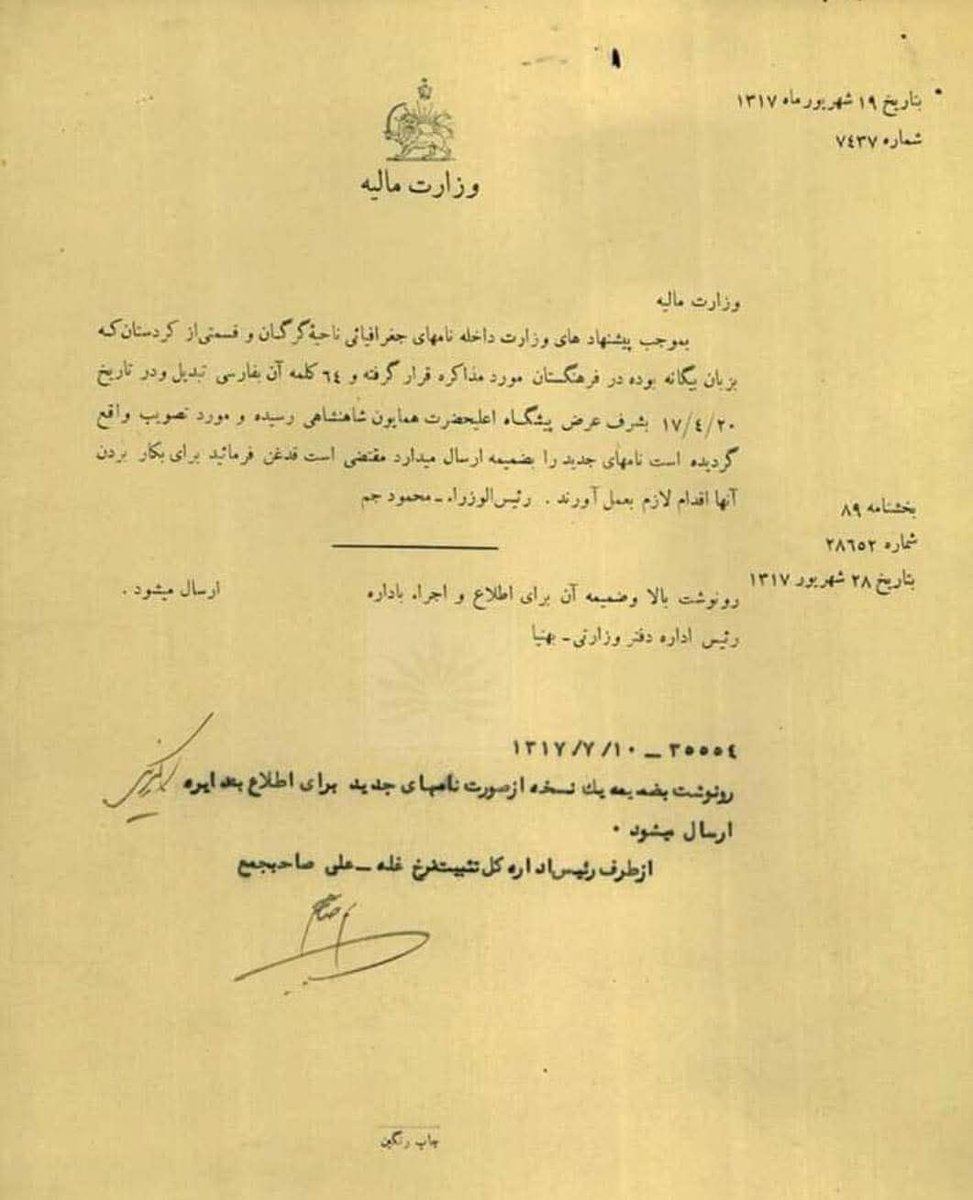 بتاریخ ۱۹ شهریور ماه ۱۳۱۷
شماره ۷٤۳۷
وزارت مالیه
وزارت مالیه
بموجب پیشنهاد های وزارت داخله نامهای جغرافیائی ناحیهٔ گرگان و قسمتی از کردستان که
بزبان بیگانه بوده در فرهنگستان مورد مذاکره قرار گرفته و ٦٤ کلمه آن بفارسی تبدیل ودر تاریخ
۱۷/٤/۲۰ بشرف عرض پیشگاه اعلیحضرت همایون شاهنشاهی رسیده و مورد تصویب واقع
گردیده است نامهای جدید را بضمیمه ارسال میدارد مقتضی است قدغن فرمائید برای بکار بردن
آنها اقدام لازم بعمل آورند . رئیس‌الوزراء ـ محمود جم
بخشنامه ۸۹
شماره ۲۸٦۵۲
بتاریخ ۲۸ شهریور ۱۳۱۷
رونوشت بالا وضمیمه آن برای اطلاع و اجراء باداره ارسال میشود .
رئیس اداره دفتر وزارتی ـ بهنیا
۳۵۵۵٤ ـ ۱۳۱۷/۷/۱۰
رونوشت بضمیمه یك نسخه ازصورت نامهای جدید برای اطلاع بدایره
ارسال میشود .
ازطرف رئیس اداره کل تثبیت نرخ غله ـ علی صاحبجمع
چاپ رنگین